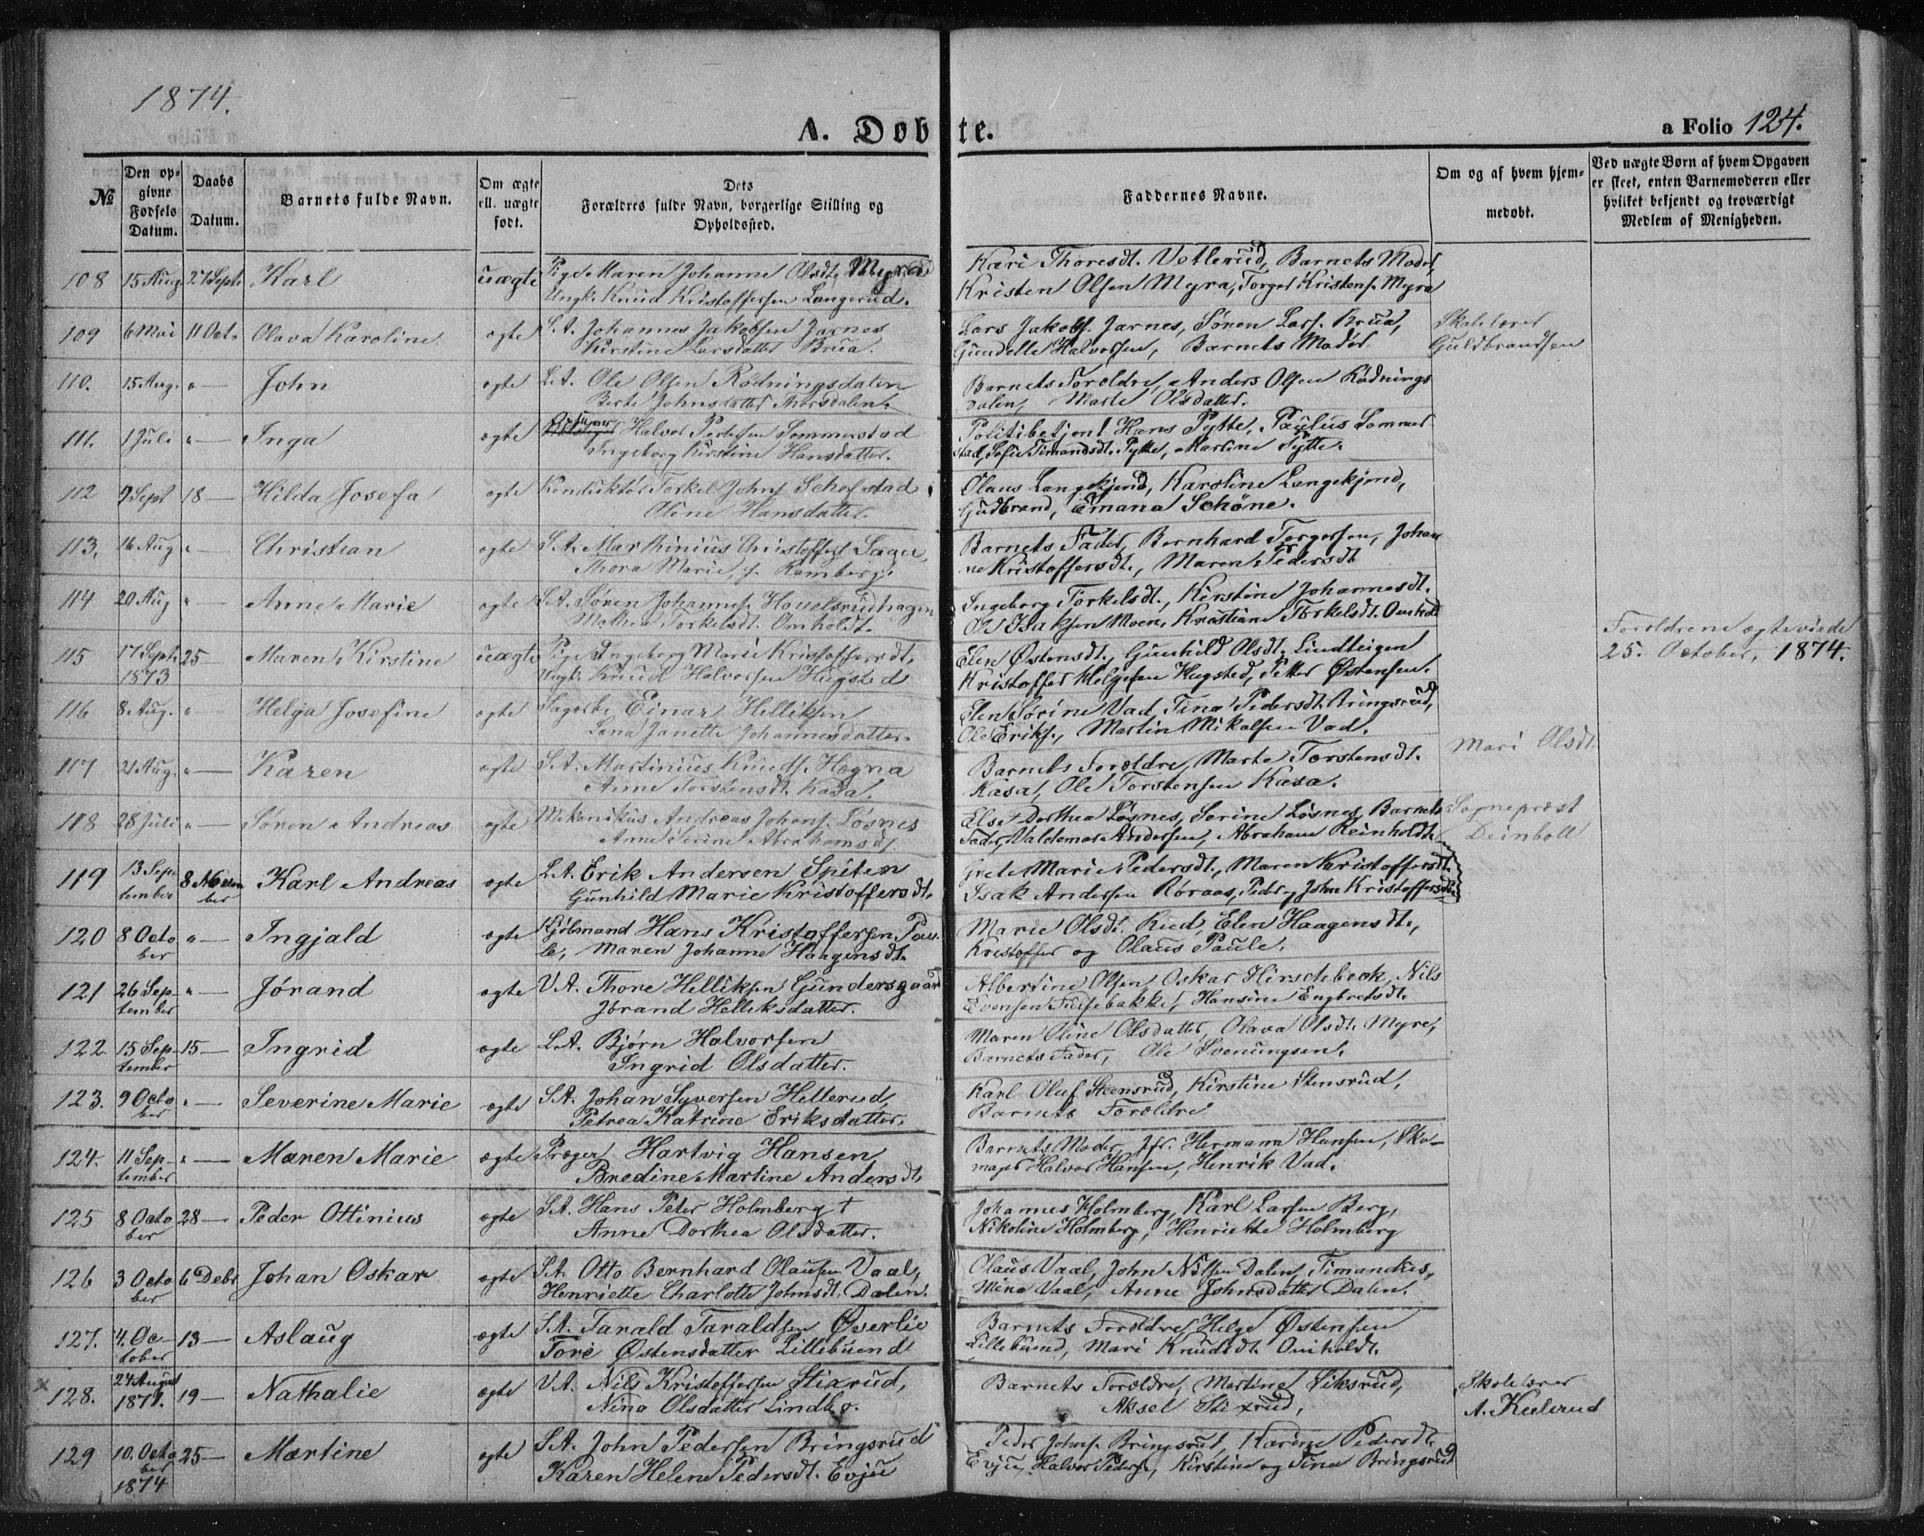 1874.
A. Døbte.
a Folio 124.
№
Den opgivne Fødsels Datum.
Daabs Datum.
Barnets fulde Navn.
Om ægte ell. uægte født.
Dets Forældres fulde Navn, borgerlige Stilling og Opholdssted.
Faddernes Navne.
Om og af hvem hjemmedøbt.
Ved uægte Børn af hvem Opgaven er skeet, enten Barnemoderen eller hvilket bekjendt og troværdigt Medlem af Menigheden.
108 15 Aug 27 Sept. Karl uægte Pige Maren Johanne Olsdt. Myra Kari Thoresdt. Votlerud, Barnets Moder,
Ungk. Knud Kristoffersen Langerud. Kristen Olsen Myra, Torger Kristens. Myra
109 6 Mai 11 Oct. Olava Karoline ægte S.A. Johannes Jakobsen Jarnes Lars Jakobs. Jarnes, Søren Lars. Brua, Skolelærer
Kirstine Larsdatter Brua. Gunelle Halvorsen, Barnets Moder Guldbrandsen
110. 15 Aug. " — John ægte L.A. Ole Olsen Rødningsdalen Barnets Forældre, Anders Olsen Rødnings
Berte Johnsdatter Thorsdalen. dalen, Marte Olsdatter.
111. 1 Juli " — Inga ægte Halvor Pedersen Sommerstad Politibetjent Hans Pytte, Paulus Sommer
Ingeborg Kirstine Hansdatter. stad, Sofie Timandsdt. Pytte, Martine Pytte.
112 9 Sept 18 — Hilda Josefa ægte Konduktør Torkel Johns. Schofstad Olaus Langekjend, Karoline Langekjend,
Oline Hansdatter. Gudbrand, Emana Schøne.
113. 16 Aug " — Christian ægte S.A. Marthinius Christoffers. Saga, Barnets Fader, Bernhard Torgersen, Johan
Thora Marie f. Remberg. ne Kristoffersdt., Maren Pedersdt
114 20 Aug " — Anne Marie ægte S.A. Søren Johannes. Hovelsrudhagen Ingeborg Torkelsdt., Kirstine Johannesdt.
Mathea Torkelsdt. Omholdt. Ole Isaksen Moen, Kristiane Torkelsdt. Omholdt
115 17 Sept. 1873 25 — Maren Kirstine uægte Pige Ingeborg Marie Kristoffersdt. Elen Østensdt., Gunhild Olsdt. Lindteigen Forældrene ægteviede
Ungk. Knud Halvorsen Hugsted Kristoffer Helgesen Hugsted, Petter Østensen. 25. October, 1874.
116 8 Aug. " Helga Josefine ægte Einar Helliksen Elen Sørine Vad, Tina Pedersdt. Bringsrud,
Lena Janette Johannesdatter. Ole Eriks., Martin Mikalsen Vad.
117 21 Aug. " — Karen ægte S.A. Martinius Knuds. Hogna Barnets Forældre, Marte Torstensdt. Mari Olsdt.
Anne Torstensdt. Kasa. Kasa, Ole Torstensen Kasa.
118 28 Juli " — Søren Andreas ægte Mekanikus Andreas Johans. Løsnes Else Dorthea Løsnes, Sørine Løsnes, Barnets Sogneprest
Anne Serine Abrahamsdt Fader, Valdemar Andersen, Abraham Reinholdt. Deinboll
119 13 September 8 November Karl Andreas ægte L.A. Erik Andersen Spiten Grete Marie Pedersdt., Maren Kristoffersdt.
Gunhild Marie Kristoffersdt. Isak Andersen Røraas, Peder og John Kristoffersen.
120 8 October " — Ingjald ægte Kjøbmand Hans Kristoffersen Pau- Marie Olsdt. Rud, Elen Haagensdt.,
le, Maren Johanne Haagensdt. Kristoffer og Olaus Paule.
121 26 September " — Jørand ægte V.A. Thore Helliksen Gundersgaard Albertine Olsen, Oskar Hirschbeck, Nils
Jørand Helliksdatter. Evensen, Hansine Engbretsdt.
122. 15 September 15 — Ingrid ægte L.A. Bjørn Halvorsen Maren Oline Olsdatter, Olava Olsdt. Myre,
Ingrid Olsdatter. Barnets Fader, Ole Svenungsen.
123. 9 October " — Severine Marie ægte S.A. Johan Syversen Hellerud, Karl Oluf Steensrud, Kirstine Stensrud,
Petrea Katrine Eriksdatter. Barnets Forældre
124. 11 September " — Maren Marie ægte Præger Hartvig Hansen, Barnets Moder, Jfr. Hermana Hansen, Sko-
Bredine Martine Andersdt. mager Halvor Hansen, Henrik Vad.
125 8 October 28 — Peder Ottinius ægte S.A. Hans Peter Holmberg † Johannes Holmberg, Karl Larsen Berg,
Anne Dorthea Olsdatter. Nikoline Holmberg, Henriette Holmberg
126 3 October 6 Debr Johan Oskar ægte S.A. Otto Bernhard Olausen Vaal, Olaus Vaal, John Nilsen Dalen, Timandus,
Henriette Charlotte Johnsdt. Dalen. Mina Vaal, Anne Johnsdatter Dalen.
127. 4. October 13 — Aslaug ægte S.A. Tarald Taraldsen Øserlie Barnets Forældre, Helge Østensen
Tore Østensdatter Lillebuend Lillebuend, Mari Knudsdt. Omholdt.
x 128. 24 August 1871. 19 — Nathalie ægte V.A. Nils Kristoffersen Stixrud, Barnets Forældre, Martine Viksrud, Skolelærer
Nina Olsdatter Lindbo. Aksel Stixrud, A. Kulsrud
129 10. October 1874 25 — Martine ægte S.A. John Pedersen Bringsrud Peder Johns. Bringsrud, Karine Pedersdt.
Karen Helene Pedersdt. Evju Evju, Halvor Peders., Kirstine og Tina Bringsrud